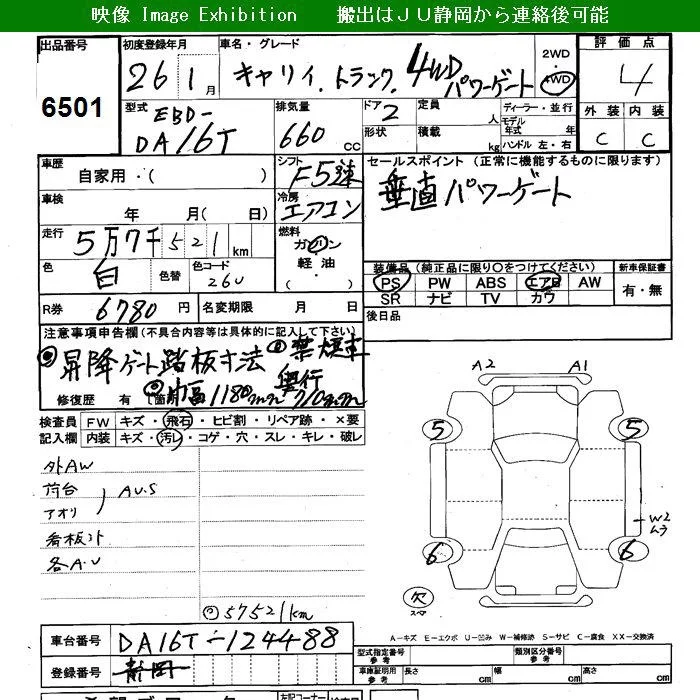 映像 Image Exhibition　　搬出はＪＵ静岡から連絡後可能
出品番号
6501
初度登録年月
26 1月
車名・グレード
キャリイ.トラック.4WD パワーゲート
2WD
4WD
評価点
4
外装 内装
C C
型式
EBD-
DA16T
排気量
660 CC
ドア 2
形状
定員 人
積載 kg
ディーラー・並行
モデル 年式 年
ハンドル 左・右
車歴
自家用・( )
シフト
F5速
セールスポイント (正常に機能するものに限ります)
垂直パワーゲート
車検
年 月( 日)
冷房
エアコン
走行
5万7千521km
燃料
ガソリン
軽油
( ・ )
色
白
色替
色コード
26U
装備品 (純正品に限り○をつけてください)
新車保証書
PS PW ABS エアB AW
SR ナビ TV カワ
有・無
R券 6780円
名変期限 月 日
後日品
注意事項申告欄(不具合内容等は具体的に記入して下さい)
◎昇降ゲート踏板寸法 ◎禁煙車
◎巾幅1180mm 奥行710mm
修復歴 有
検査員 FW キズ・飛石・ヒビ割・リペア跡・×要
記入欄 内装 キズ・汚レ・コゲ・穴・スレ・キレ・破レ
外AW
荷台
アオリ
AU.S
看板ｺﾄ
各A.U
A2 A1
5 5
W2
ムラ
6 6
欠
57521km
A－キズ E－エクボ U－凹み W－補修跡 S－サビ C－腐食 XX－交換済
車台番号 DA16T-124488
型式指定番号 参考
類別区分番号 参考
登録番号 静岡
車庫証明用 参考
長さ cm 幅 cm 高さ cm